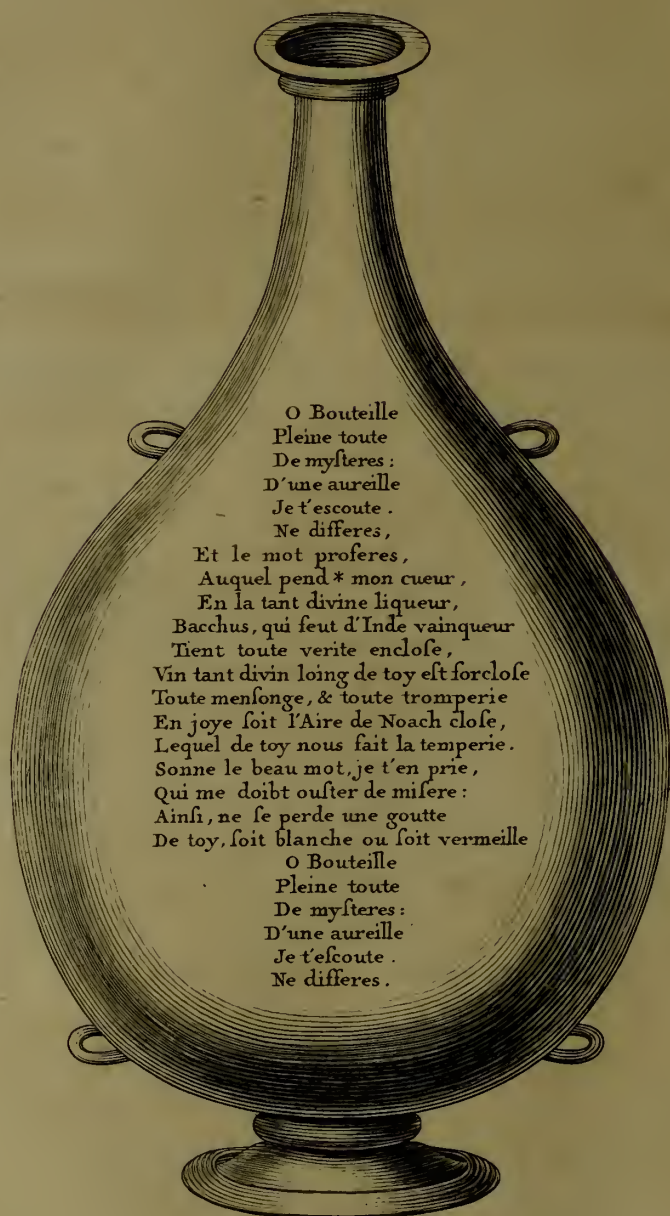 O Bouteille
Pleine toute
De myſteres :
D'une aureille
Je t'escoute .
Ne differes ,
Et le mot proferes ,
Auquel pend * mon cueur ,
En la tant divine liqueur ,
Bacchus , qui feut d'Inde vainqueur
Tient toute verite encloſe ,
Vin tant divin loing de toy eſt forcloſe
Toute menſonge , & toute tromperie
En joye ſoit l'Aire de Noach cloſe ,
Lequel de toy nous fait la temperie .
Sonne le beau mot , je t'en prie ,
Qui me doibt ouſter de miſere :
Ainſi , ne ſe perde une goutte
De toy , ſoit blanche ou ſoit vermeille
O Bouteille
Pleine toute
De myſteres :
D'une aureille
Je t'eſcoute .
Ne differes .